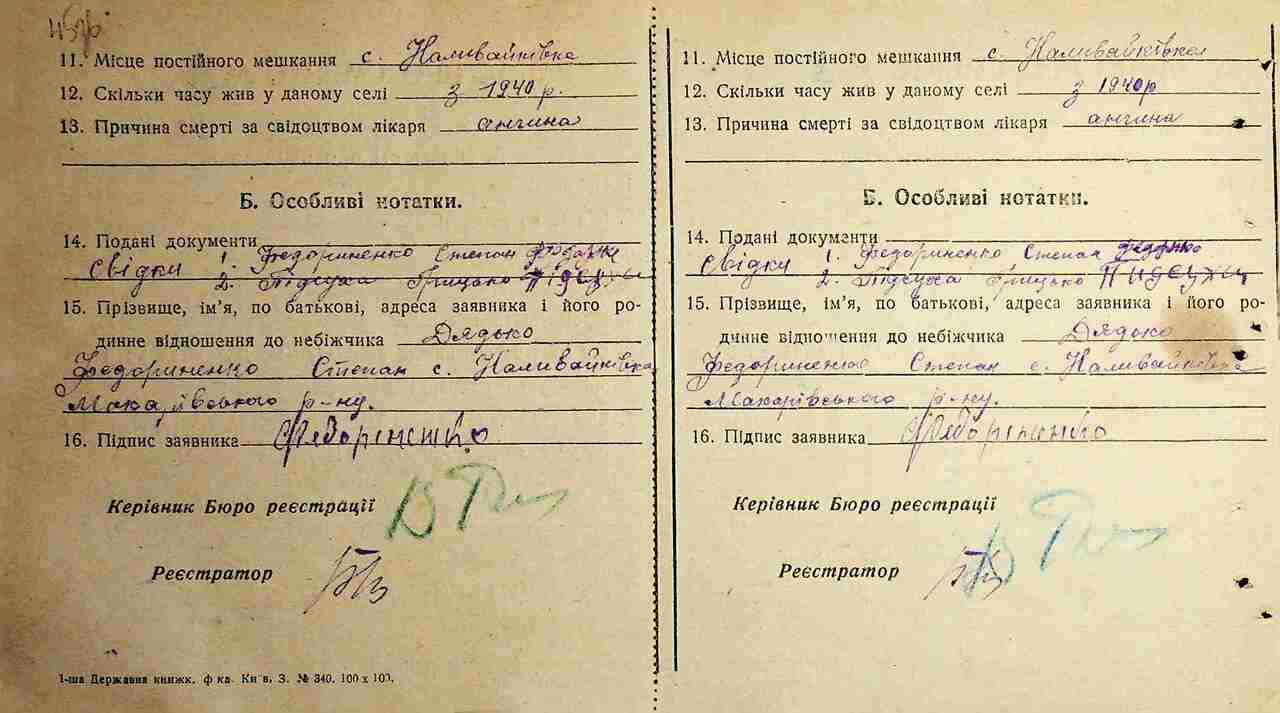 452б
11. Місце постійного мешкання с. Наливайківка
12. Скільки часу жив у даному селі з 1940 р.
13. Причина смерті за свідоцтвом лікаря ангина
Б. Особливі нотатки.
14. Подані документи
Свідки 1. Федориненко Степан
2. Підсуха Грицько
15. Прізвище, ім'я, по батькові, адреса заявника і його ро-
динне відношення до небіжчика Дядько
Федориненко Степан с. Наливайківка
Макарівського р-ну.
16. Підпис заявника
Керівник Бюро реєстрації
Реєстратор
1-ша Державна книжк. ф-ка. Київ, З. № 340. 100 х 100.
11. Місце постійного мешкання с. Наливайківка
12. Скільки часу жив у даному селі з 1940 р
13. Причина смерті за свідоцтвом лікаря ангина
Б. Особливі нотатки.
14. Подані документи
Свідки 1. Федориненко Степан
2. Підсуха Грицько
15. Прізвище, ім'я, по батькові, адреса заявника і його ро-
динне відношення до небіжчика Дядько
Федориненко Степан с. Наливайківка
Макарівського р-ну.
16. Підпис заявника
Керівник Бюро реєстрації
Реєстратор